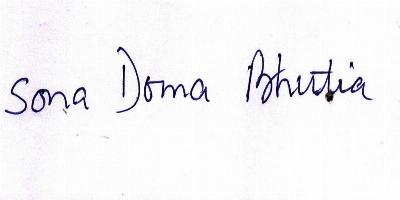 Sona Doma Bhutia